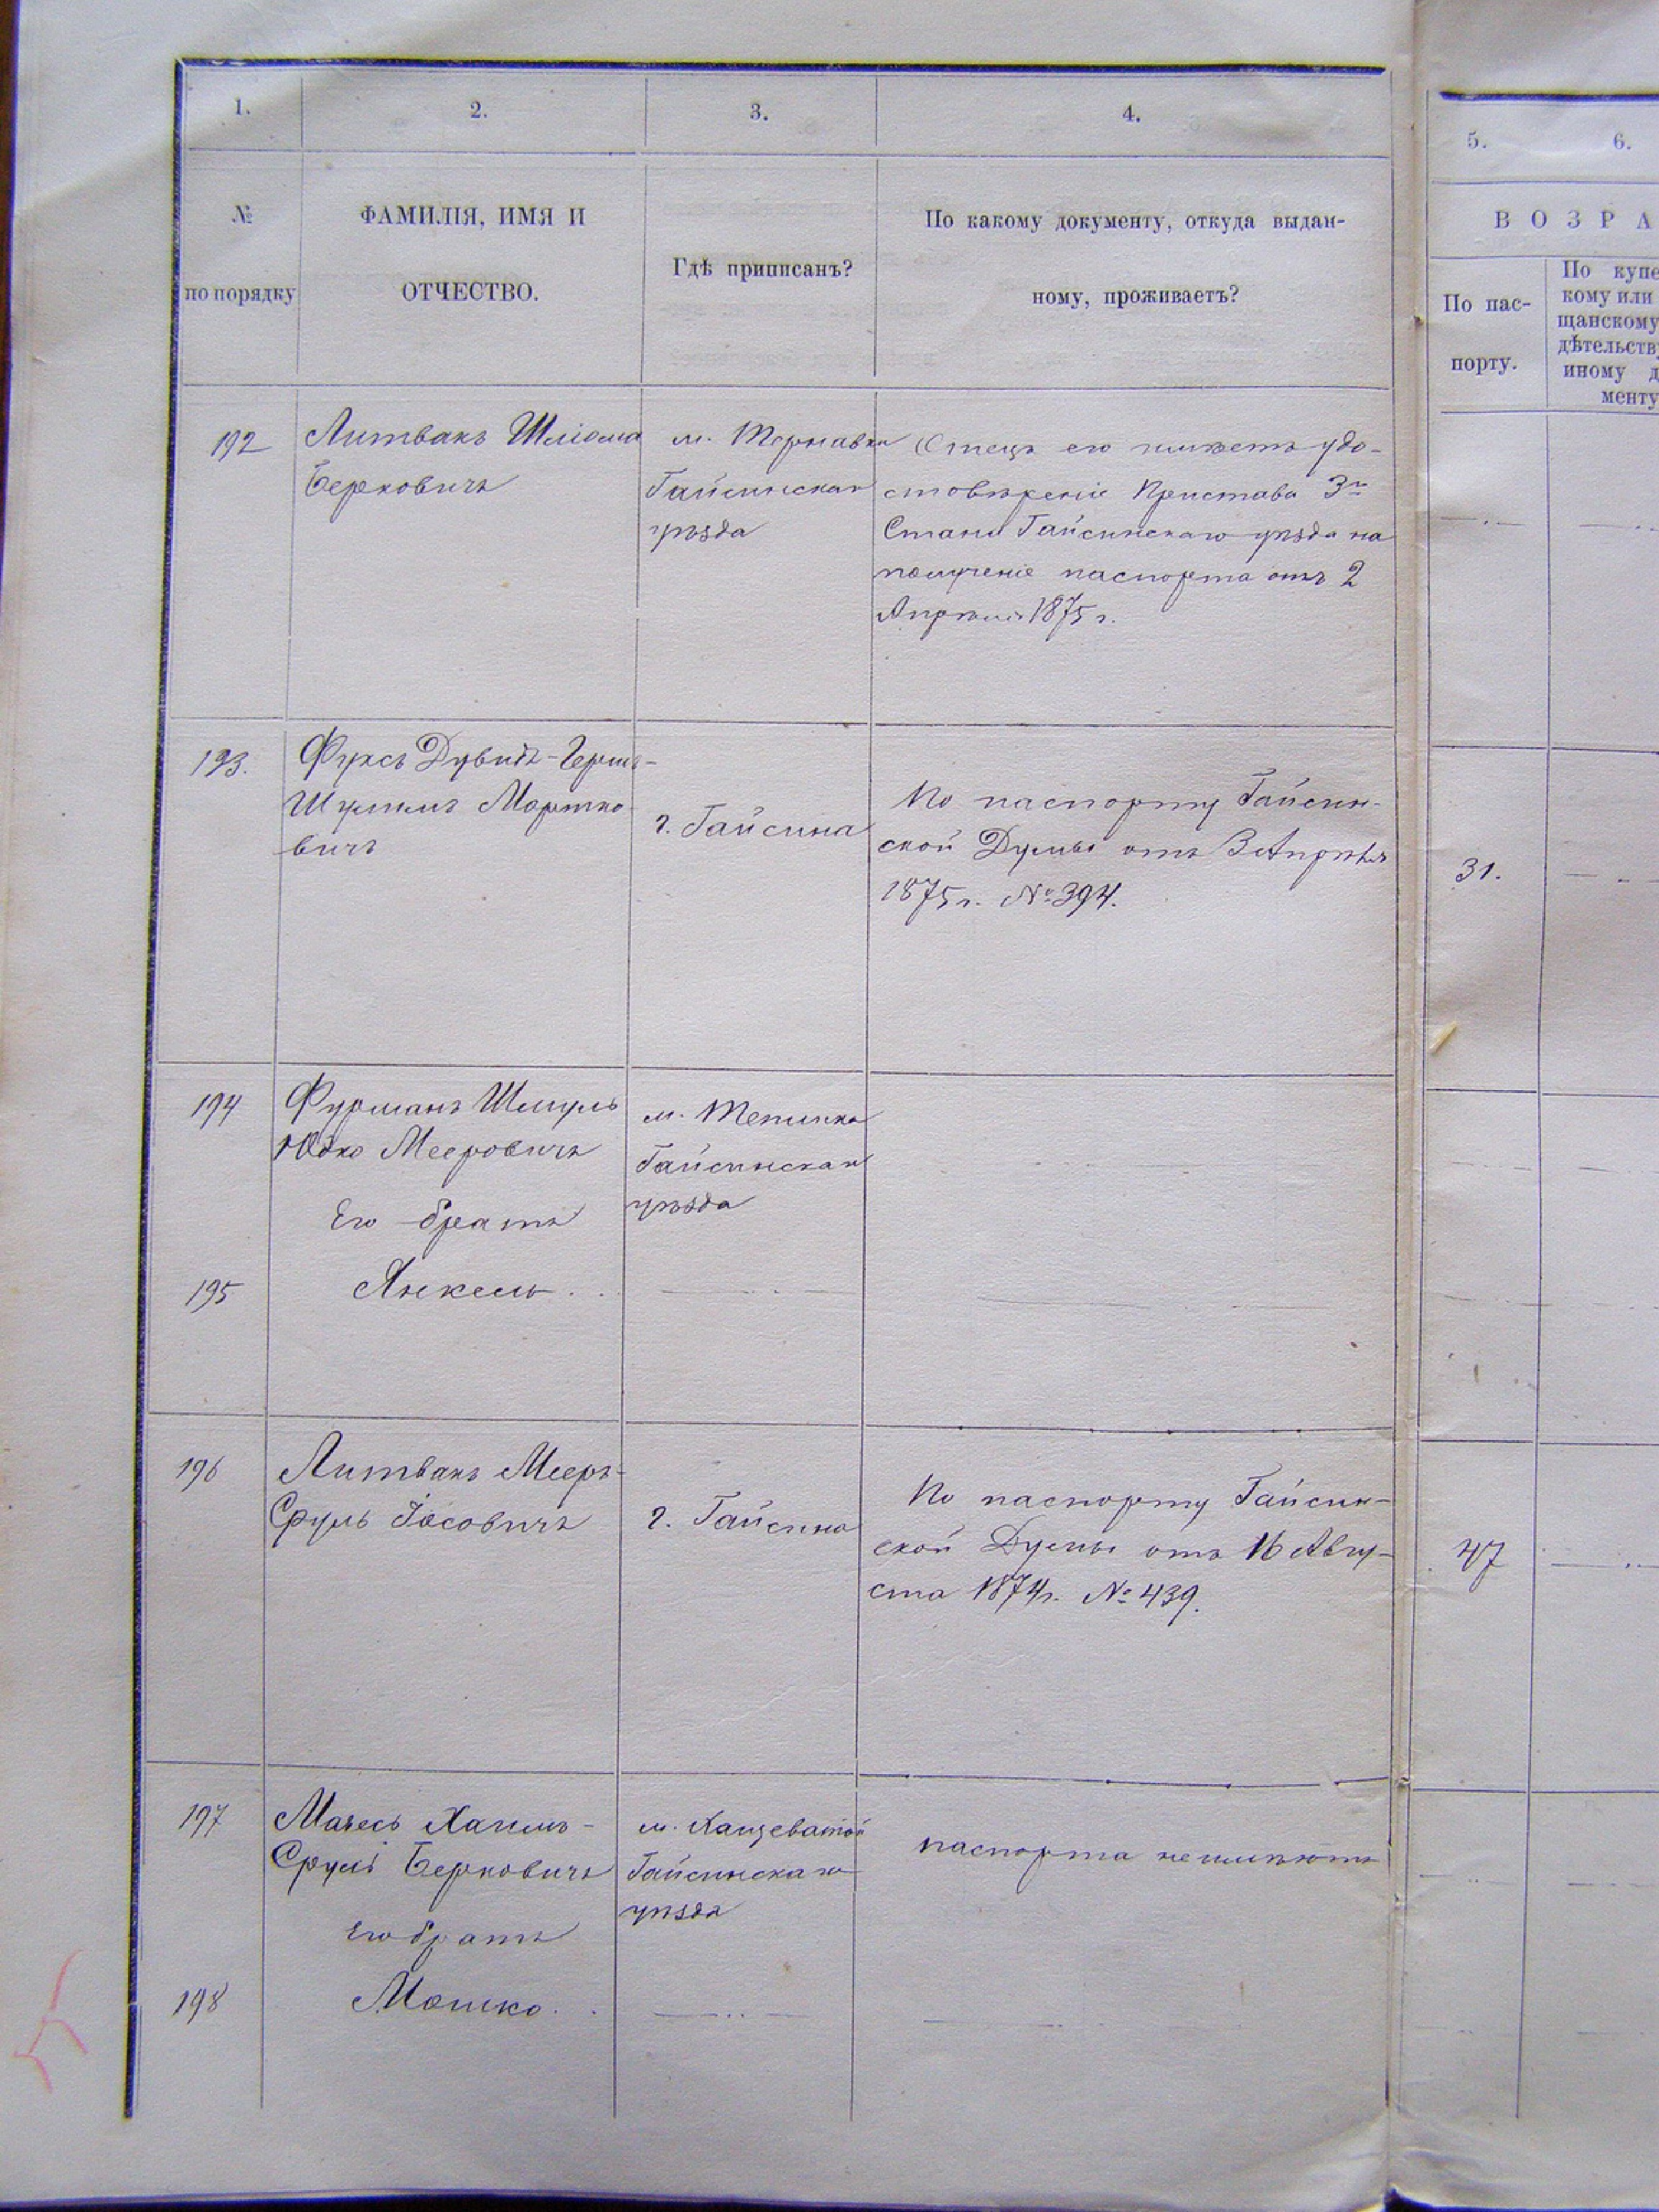 1.
2.
3.
4.
5.
6.
№
по порядку
ФАМИЛІЯ, ИМЯ И
ОТЧЕСТВО.
Гдѣ приписанъ?
По какому документу, откуда выдан-
ному, проживаетъ?
В О З Р А
По пас-
порту.
По купе
кому или
щанскому
дѣтельств
иному д
менту
192
Литвакъ Шліома
Берковичъ
м. Тернавки
Гайсинскаго
уѣзда
Отецъ его имѣетъ удо-
стовѣреніе Пристава 3го
Стана Гайсинскаго уѣзда на
полученіе паспорта отъ 2
Апрѣля 1875 г.
193.
Фуксъ Дувидъ-Гершъ-
Шулимъ Мортко-
вичъ
г. Гайсина
По паспорту Гайсин-
ской Думы отъ 3 Апрѣля
1875 г. № 394.
31.
194
Фурманъ Шмуль
Юдко Мееровичъ
м. Теплика
Гайсинскаго
уѣзда
Его братъ
195
Янкель
196
Литвакъ Мееръ-
Сруль Іосовичъ
г. Гайсина
По паспорту Гайсин-
ской Думы отъ 16 Авгу-
ста 1874 г. № 439.
47
197
Хаимъ-
Сруль Берковичъ
м. Хащеватой
Гайсинскаго
уѣзда
паспорта не имѣютъ
Его братъ
198
Мошко
55